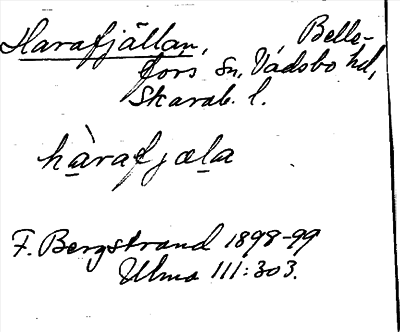 Harafjällan, Belle-
fors sn, Vadsbo hd,
Skarab. l.
hàrafjæla
F. Bergstrand 1898-99
Ulma 111:303.